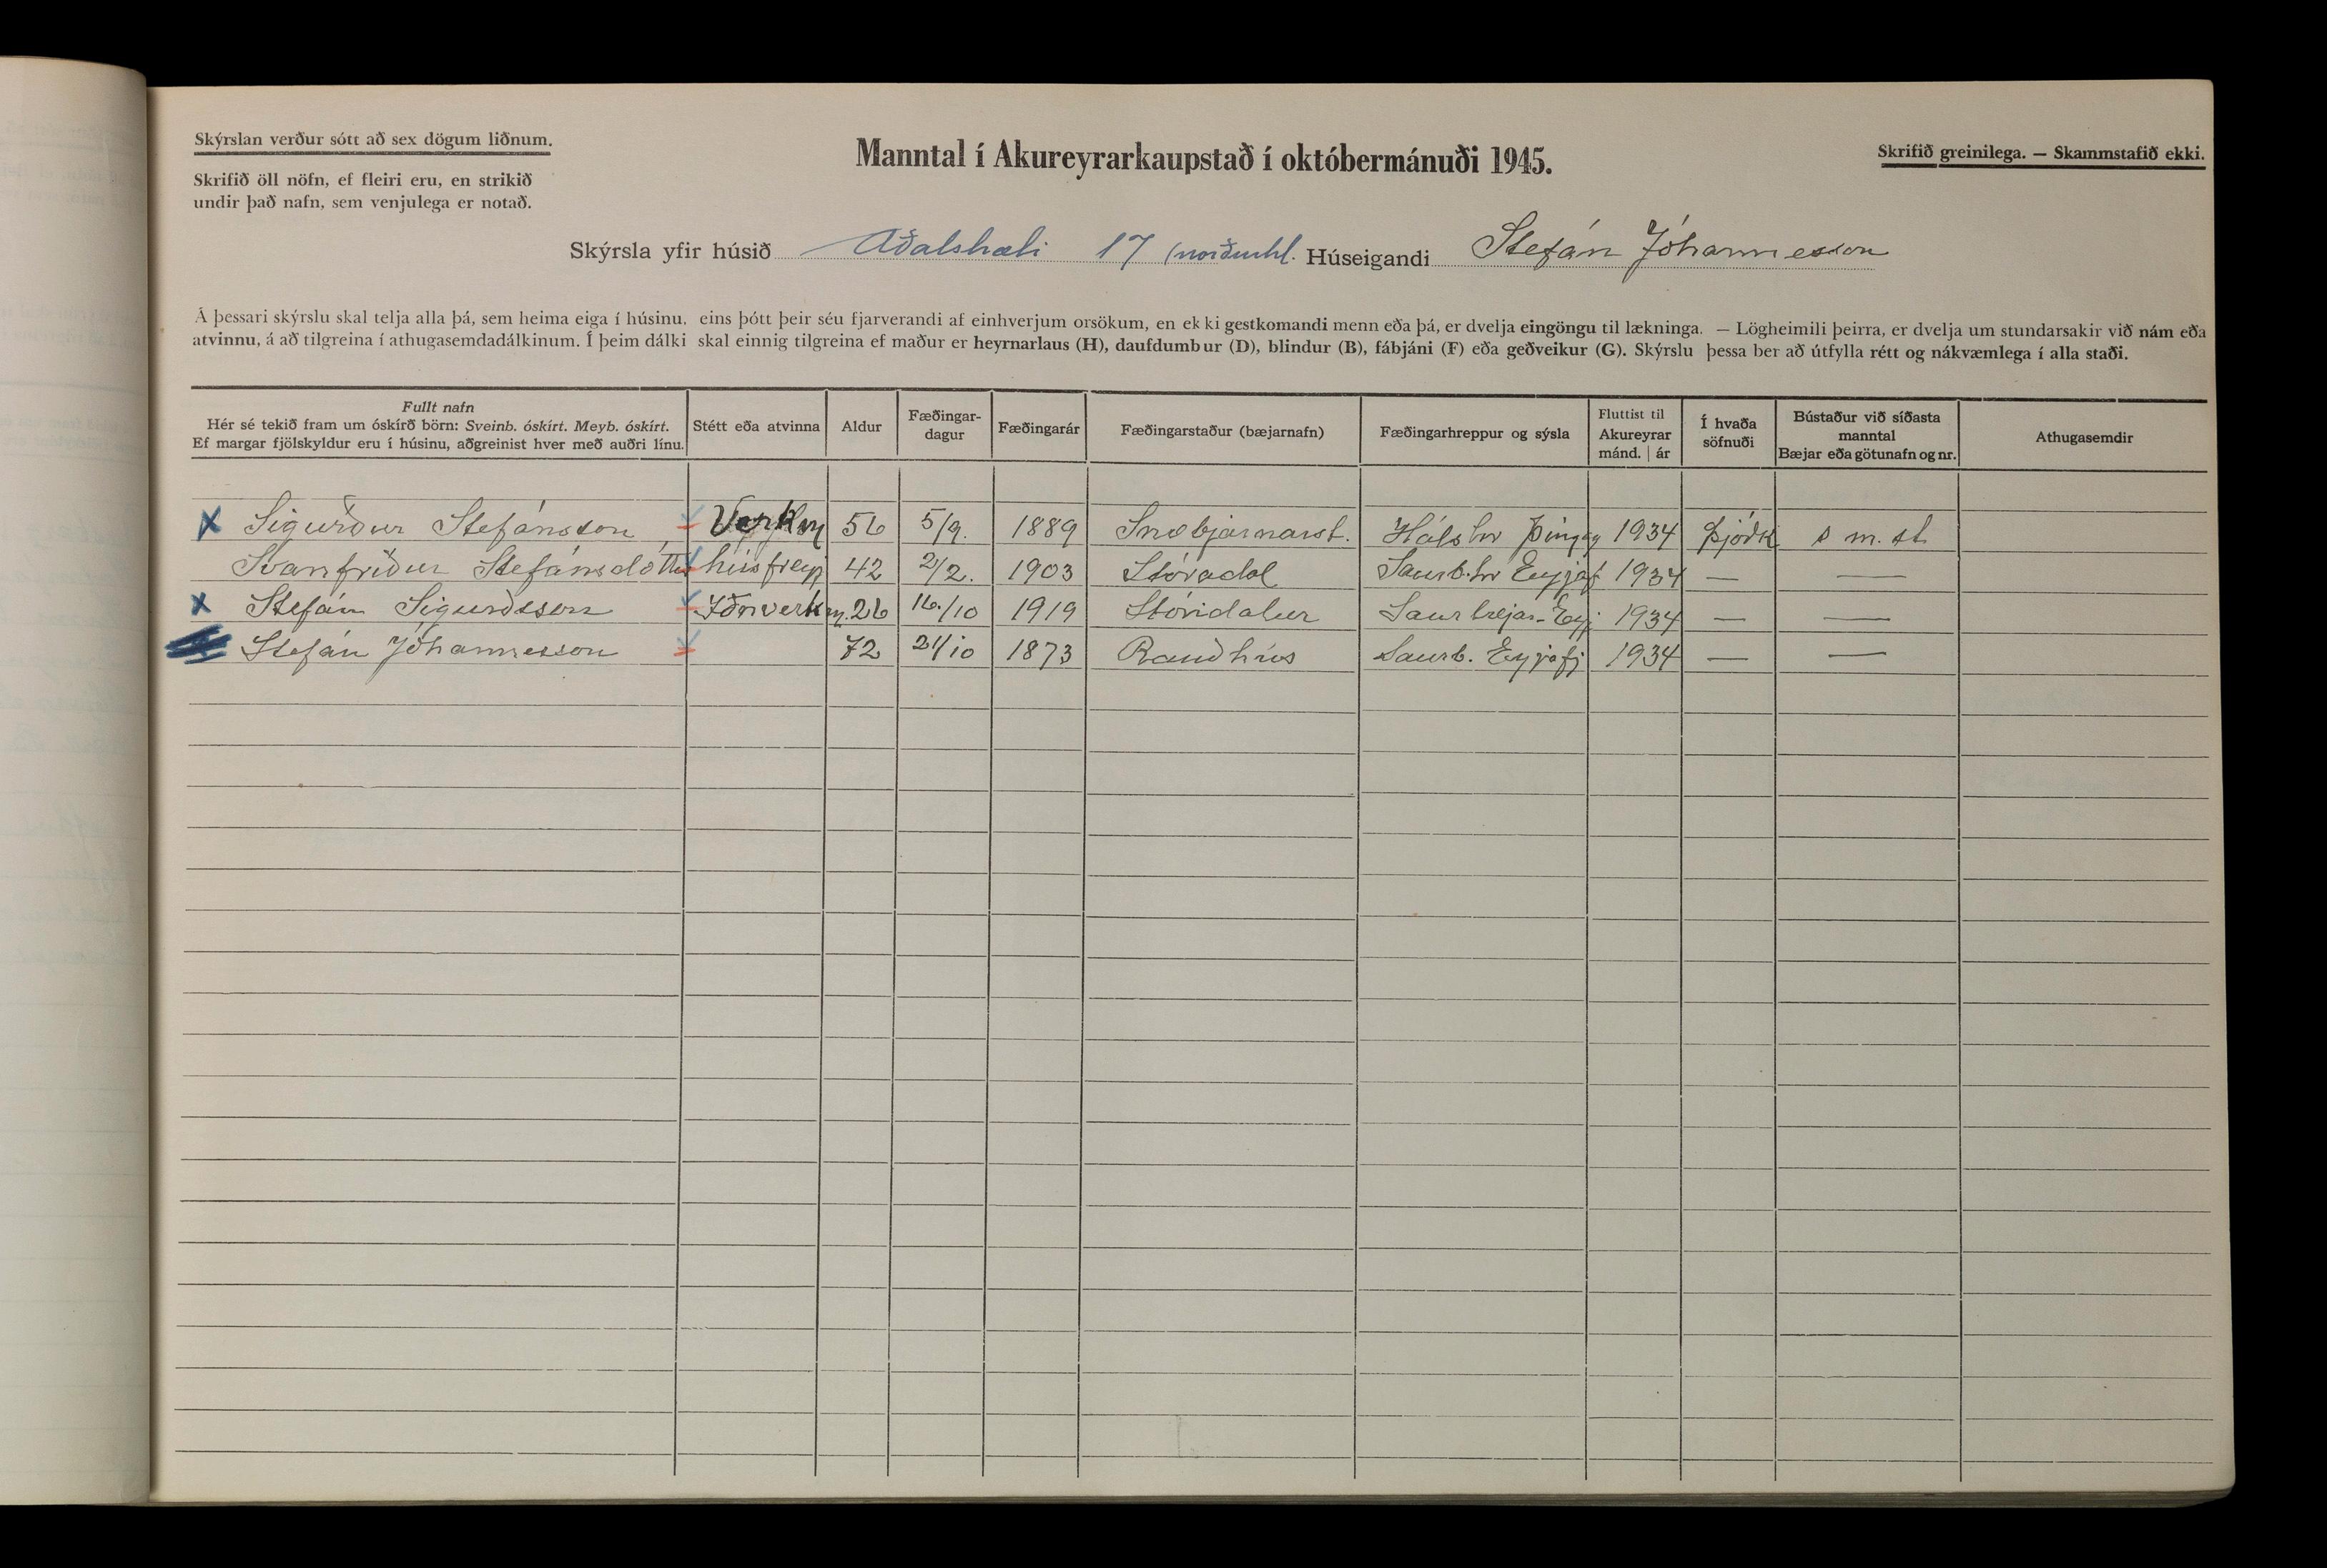 Skýrslan verður sótt að sex dögum liðnum.
Skrifið öll nöfn, ef fleiri eru, en strikið
undir það nafn, sem venjulega er notað.
Manntal í Akureyrarkaupstað í októbermánuði 1945.
Skrifið greinilega. — Skammstafið ekki.
Skýrsla yfir húsið Aðalstræti 17 (norðurhl. Húseigandi Stefán Jóhannesson
Á þessari skýrslu skal telja alla þá, sem heima eiga í húsinu, eins þótt þeir séu fjarverandi af einhverjum orsökum, en ekki gestkomandi menn eða þá, er dvelja eingöngu til lækninga. — Lögheimili þeirra, er dvelja um stundarsakir við nám eða
atvinnu, á að tilgreina í athugasemdadálkinum. Í þeim dálki skal einnig tilgreina ef maður er heyrnarlaus (H), daufdumbur (D), blindur (B), fábjáni (F) eða geðveikur (G). Skýrslu þessa ber að útfylla rétt og nákvæmlega í alla staði.
Fullt nafn
Hér sé tekið fram um óskírð börn: Sveinb. óskírt. Meyb. óskírt.
Ef margar fjölskyldur eru í húsinu, aðgreinist hver með auðri línu.
Stétt eða atvinna
Aldur
Fæðingar-
dagur
Fæðingarár
Fæðingarstaður (bæjarnafn)
Fæðingarhreppur og sýsla
Fluttist til
Akureyrar
mánd. | ár
Í hvaða
söfnuði
Bústaður við síðasta
manntal
Bæjar eða götunafn og nr.
Athugasemdir
x Sigurður Stefánsson Verkm 56 5/9. 1889 Snæbjarnarst. Hálshr Þingey 1934 Þjóðk s m. st
Svanfríður Stefánsdóttir húsfreyj 42 2/2. 1903 Stóradal Saurb.hr Eyjaf 1934 — —
x Stefán Sigurðsson Iðnverkm. 26 16./10 1919 Stóridalur Saurbæjar-Eyj. 1934 — —
Stefán Jóhannesson 72 21/10 1873 Rauðhús Saurb. Eyjafj 1934 — —